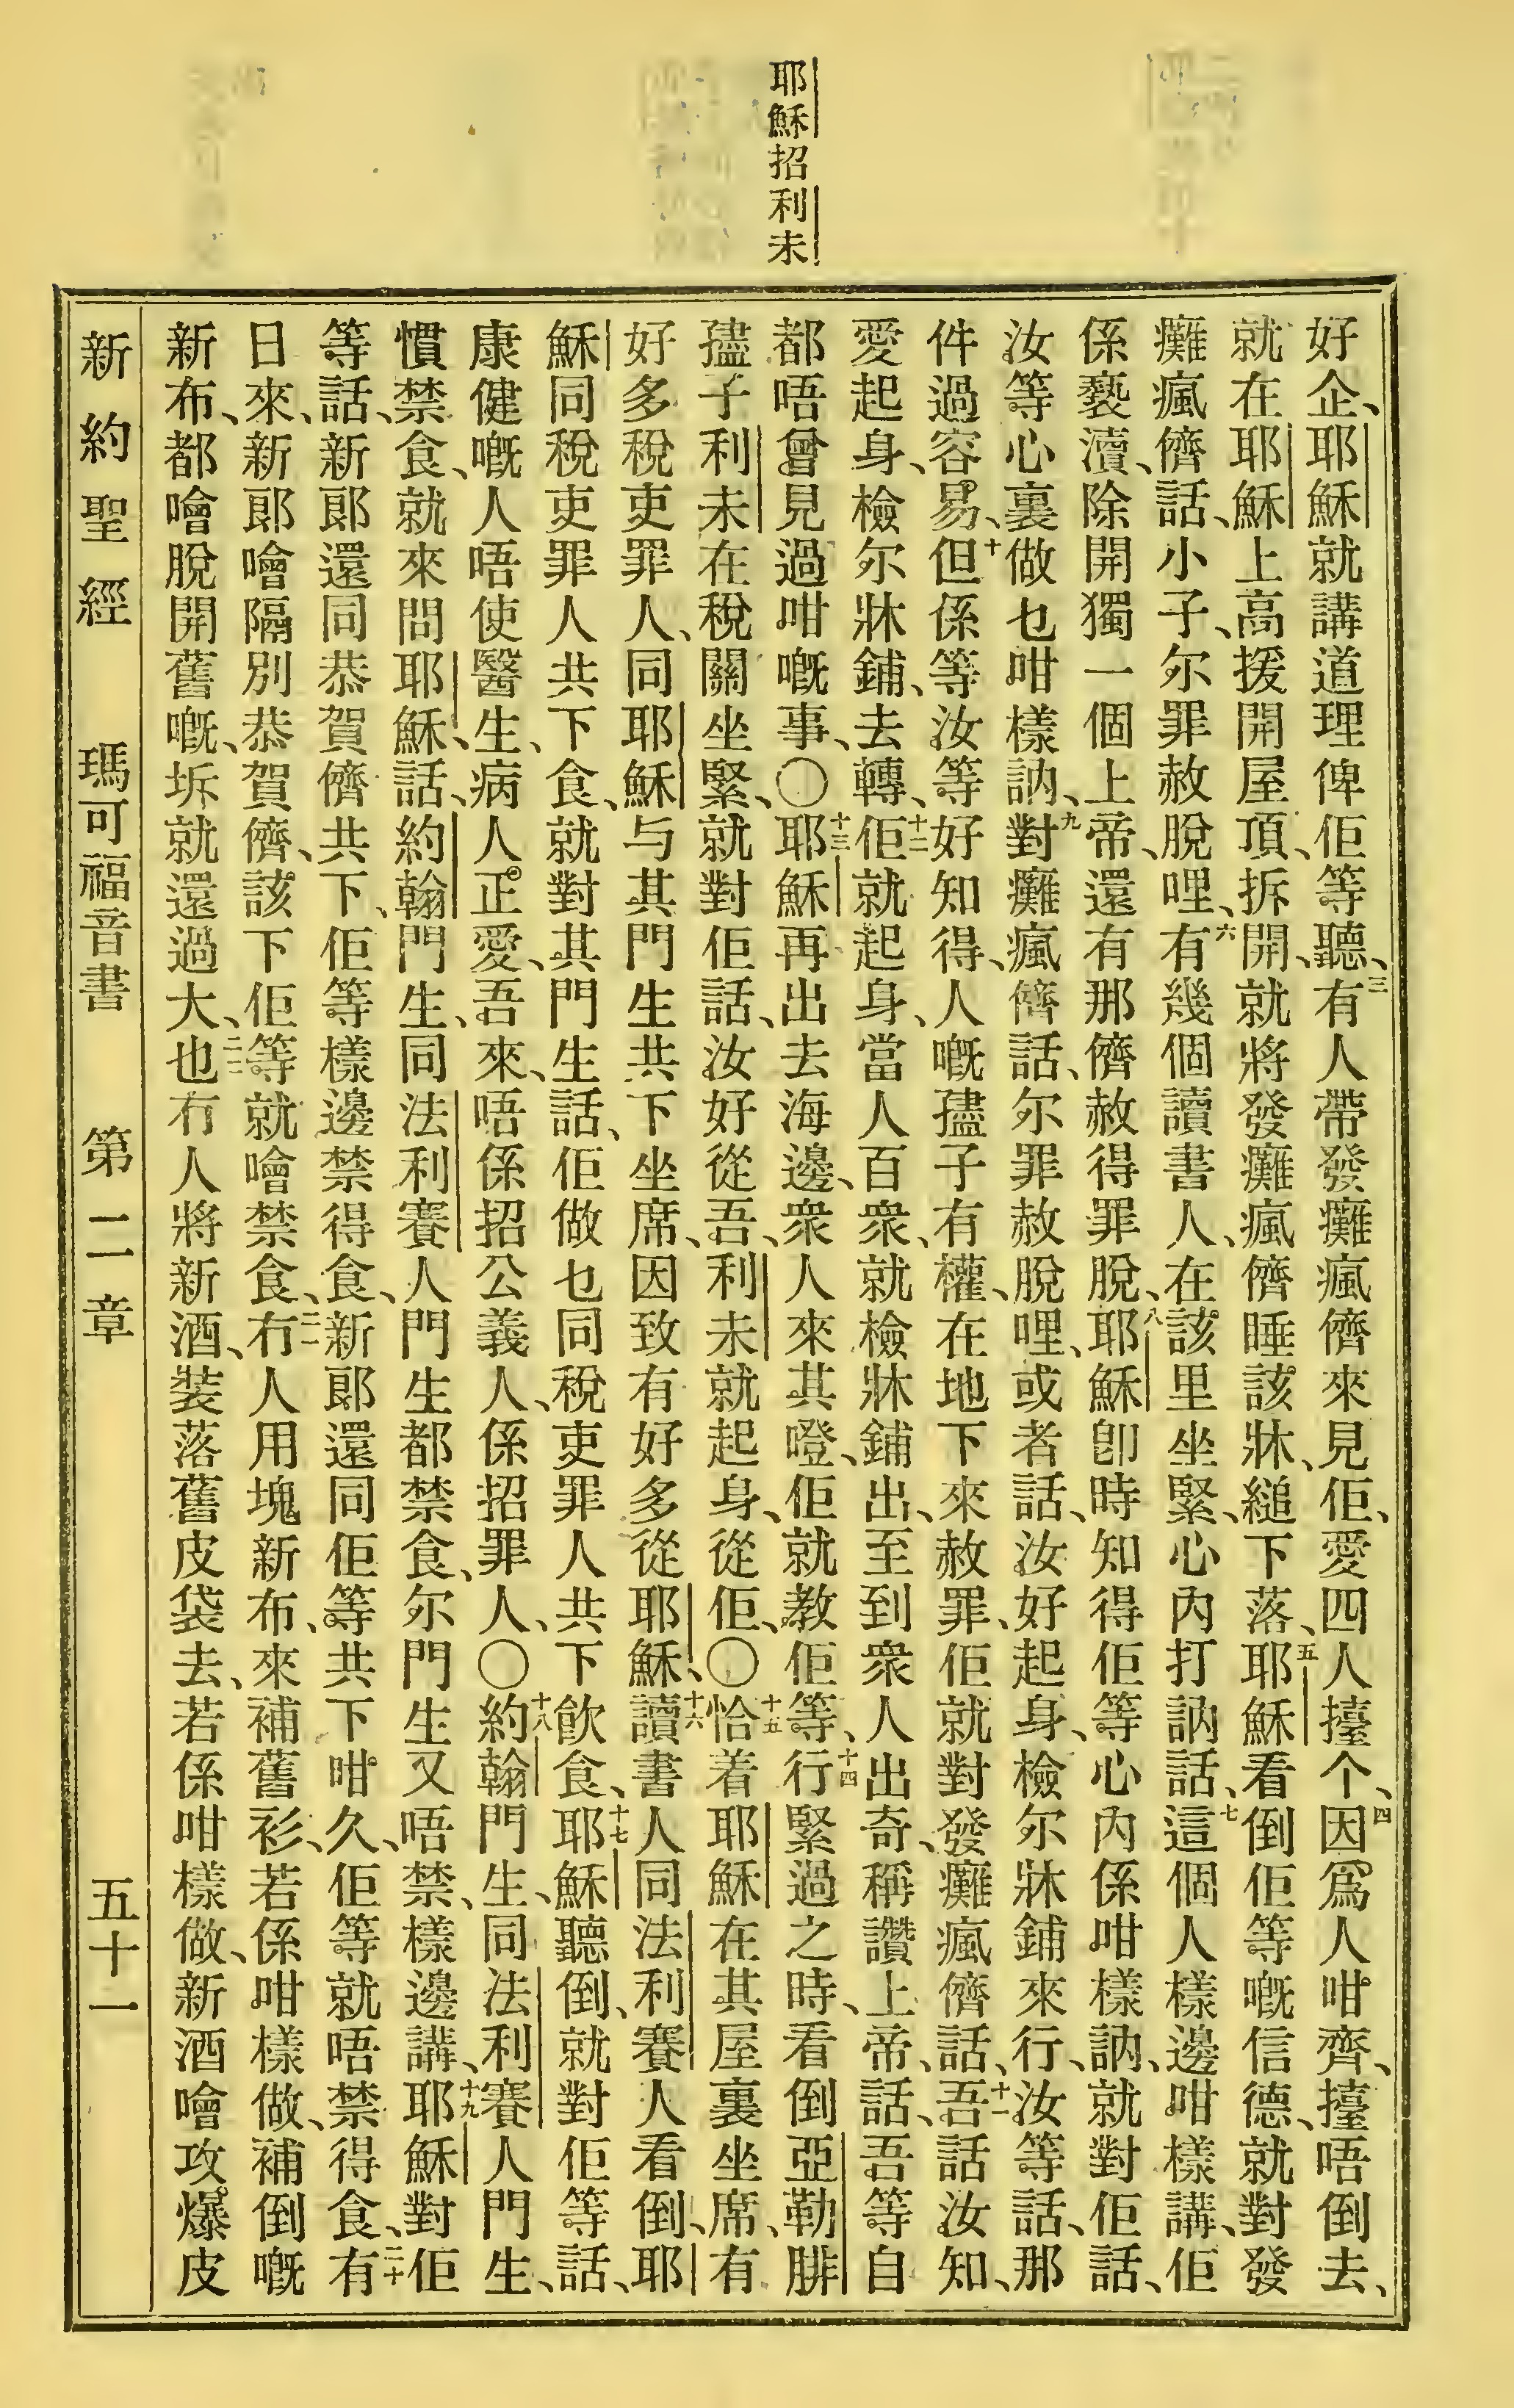 耶穌招利未
好企、耶穌就講道理俾佢等聽、三有人帶發癱瘋儕來見佢、愛四人擡个、四因爲人咁齊、擡唔倒去、
就在耶穌上高援開屋頂、拆開、就將發癱瘋儕睡該牀、縋下落、五耶穌看倒佢等嘅信德、就對發
癱瘋儕話、小子、尔罪赦脫哩、六有幾個讀書人、在該里坐緊、心內打訥話、七這個人樣邊咁樣講、佢
係褻瀆、除開獨一個上帝、還有那儕赦得罪脫、八耶穌卽時知得佢等心內係咁樣訥、就對佢話、
汝等心裏做乜咁樣訥、九對癱瘋儕話、尔罪赦脫哩、或者話、汝好起身、檢尔牀鋪來行、汝等話、那
件過容易、十但係等汝等好知得、人嘅孻子有權、在地下來赦罪、佢就對發癱瘋儕話、十一吾話汝知、
愛起身、檢尔牀鋪、去轉、十二佢就起身、當人百衆、就檢牀鋪出、至到衆人出奇、稱讚上帝、話、吾等自
都唔曾見過咁嘅事、〇十三耶穌再出去海邊、衆人來其噔、佢就教佢等、十四行緊過之時、看倒亞勒腓
孻子利未在稅關坐緊、就對佢話、汝好從吾、利未就起身、從佢、〇十五恰着耶穌在其屋裏坐席、有
好多稅吏罪人、同耶穌与其門生共下坐席、因致有好多從耶穌、十六讀書人同法利賽人看倒、耶
穌同稅吏罪人共下食、就對其門生話、佢做乜同稅吏罪人共下飲食、十七耶穌聽倒、就對佢等話、
康健嘅人唔使醫生、病人正愛、吾來、唔係招公義人、係招罪人、〇十八約翰門生、同法利賽人門生、
慣禁食、就來問耶穌、話、約翰門生、同法利賽人門生都禁食、尔門生又唔禁、樣邊講、十九耶穌對佢
等話、新郞還同恭賀儕共下、佢等樣邊禁得食、新郞還同佢等共下咁久、佢等就唔禁得食、二十有
日來、新郞噲隔別恭賀儕、該下佢等就噲禁食、二一冇人用塊新布、來補舊衫、若係咁樣做、補倒嘅
新布、都噲脫開舊嘅、坼就還過大、二二也冇人將新酒、裝落舊皮袋去、若係咁樣做、新酒噲攻爆皮
新約聖經　瑪可福音書　第二章　五十一